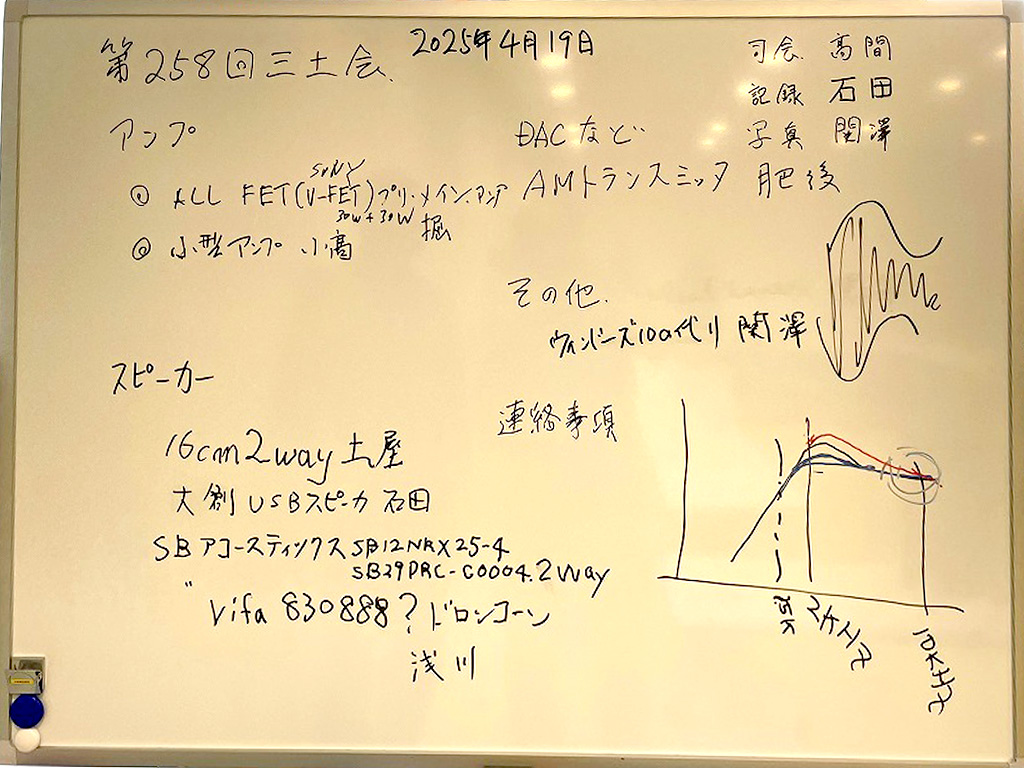 第258回三土会.
2025年4月19日
司会. 高間
記録 石田
写真 関澤
アンプ
SONY
① ALL FET(V-FET)プリ・メイン.アンプ
30W+30W 堀
② 小型アンプ 小高
DACなど
AMトランスミッタ 肥後
その他.
関澤
スピーカー
16cm2way 土屋
大創USBスピーカ 石田
SBアコースティックス SB12NRX25-4
SB29PRC-C0004.2way
〃 Vifa 830888? ドロンコーン
浅川
連絡事項
2KHz
10KHz